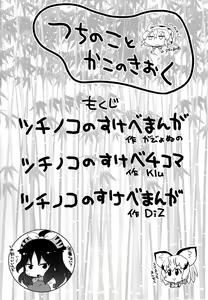 つちのこと
かこのきおく
もくじ
ツチノコのすけべまんが
作 かじょぬの
ツチノコのすけべ4コマ
作 Klu
ツチノコのすけべまんが
作 DiZ